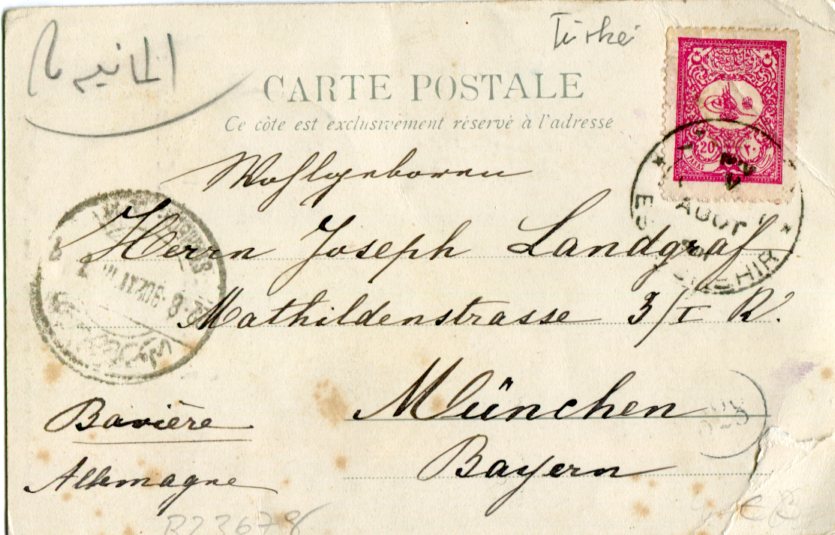 Türkei
المانيه
CARTE POSTALE
Ce côte est exclusivement réservé à l'adresse
Wohlgeboren
Herrn Joseph Landgraf
Mathildenstrasse 3/I R.
München
Bayern
Bavière
Allemagne
20
٢٠
AOUT